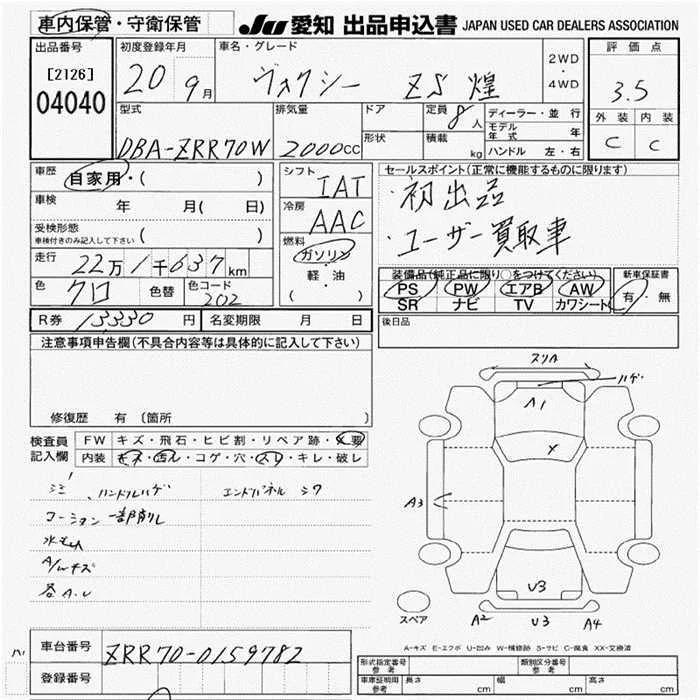 車内保管・守衛保管 JU 愛知 出品申込書 JAPAN USED CAR DEALERS ASSOCIATION
出品番号 初度登録年月 車名・グレード 2WD・4WD 評価点
[2126] 20 9月 ヴォクシー ZS 煌 3.5
04040
型式 排気量 ドア 定員 8人 ディーラー・並行 外装 内装
形状 積載 kg モデル年式 年 C C
DBA-ZRR70W 2000cc ハンドル 左・右
車歴 自家用・( ) シフト IAT セールスポイント(正常に機能するものに限ります)
車検 年 月( 日) 冷房 AAC ・初出品
受検形態 車検付きのみ記入して下さい ( ) 燃料 ガソリン・軽・油 ( ) ・ユーザー買取車
走行 22万1千637km
色 クロ 色替 色コード 202
装備品(純正品に限り○をつけてください) 新車保証書
PS PW エアB AW 有・無
SR ナビ TV カワシート
R券 13330円 名変期限 月 日 後日品
注意事項申告欄(不具合内容等は具体的に記入して下さい)
修復歴 有 〔箇所
検査員記入欄 FW キズ・飛石・ヒビ割・リペア跡・X要
内装 キズ・汚れ・コゲ・穴・スリ・キレ・破レ
ハンドルハゲ エンドパネル シワ
コーション一部削れ
A/Wキズ
各A.U
スリK
ハゲ
A1
X
A3
U3
スペア A2 U3 A4
A-キズ E-エクボ U-凹み W-補修跡 S-サビ C-腐食 XX-交換済
車台番号 ZRR70-0159782
登録番号
形式指定番号 参考 類別区分番号 参考
車庫証明用 参考 長さ cm 幅 cm 高さ cm